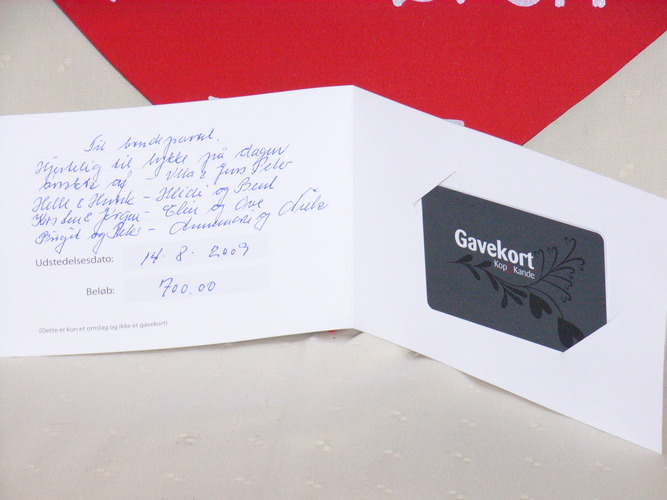 Til brudeparret.
Hjertelig til lykke på dagen
ønskes af - Ulla & Jens Peter
Helle & Henrik - Heidi og Bent
Kirsten & Jørgen - Elin og Ove
Birgit og Peter - Annemarie og Niels
Udstedelsesdato: 14.8.2009
Beløb: 700.00
(Dette er kun et omslag og ikke et gavekort)
Gavekort
Kop & Kande